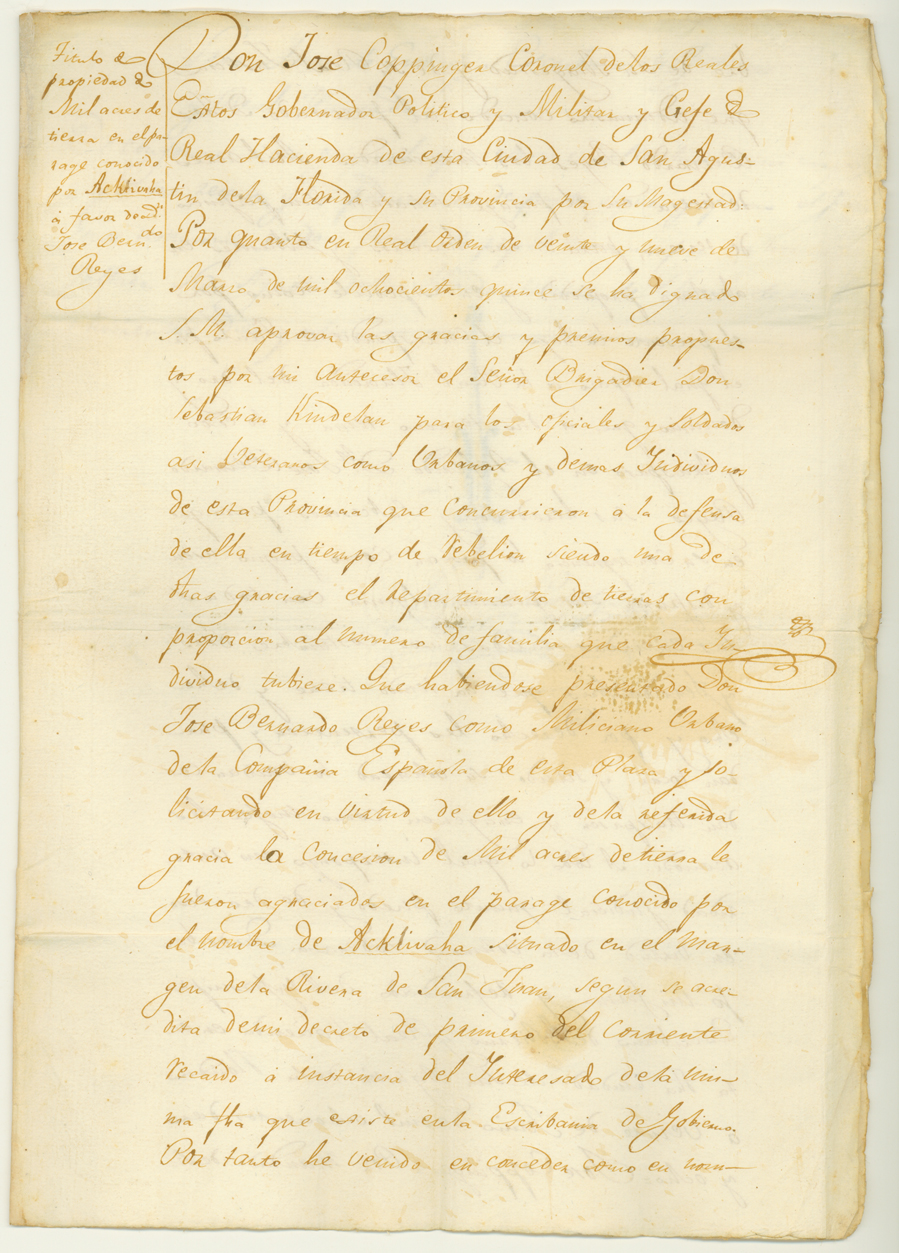 Titulo de
propiedad de
Mil acres de
tierra en el pa-
rage conocido
por Acklivaha
á favor de d.n
Jose Bern.do
Reyes
Don Jose Coppinger Coronel delos Reales
Extos Gobernador Politico y Militar y Gefe de
Real Hacienda de esta Ciudad de San Agus-
tin dela Florida y su Provincia por Su Magestad.
Por quanto en Real Orden de veinte y nueve de
Marzo de mil ochocientos quince se ha dignado
S. M. aprovar las gracias y premios propues-
tos por mi Antecesor el Señor Brigadier Don
Sebastian Kindelan para los oficiales y Soldados
asi Veteranos como Urbanos y demas Individuos
de esta Provincia que concurrieron á la defensa
de ella en tiempo de Rebelion siendo una de
dhas gracias el repartimiento de tierras con
proporcion al numero de familia que cada In-
dividuo tubiere. Que habiendose presentado Don
Jose Bernardo Reyes como Miliciano Urbano
dela Compañia Española de esta Plaza y so-
licitando en virtud de ello y dela referida
gracia la concesion de Mil acres de tierra le
fueron agraciados en el parage conocido por
el nombre de Acklivaha situado en el mar-
gen dela Rivera de San Juan, segun se acre-
dita demi decreto de primero del corriente
recaido á instancia del Interesado dela mis-
ma fha que existe enla Escribania de Gobierno.
Por tanto he venido en conceder como en nom-